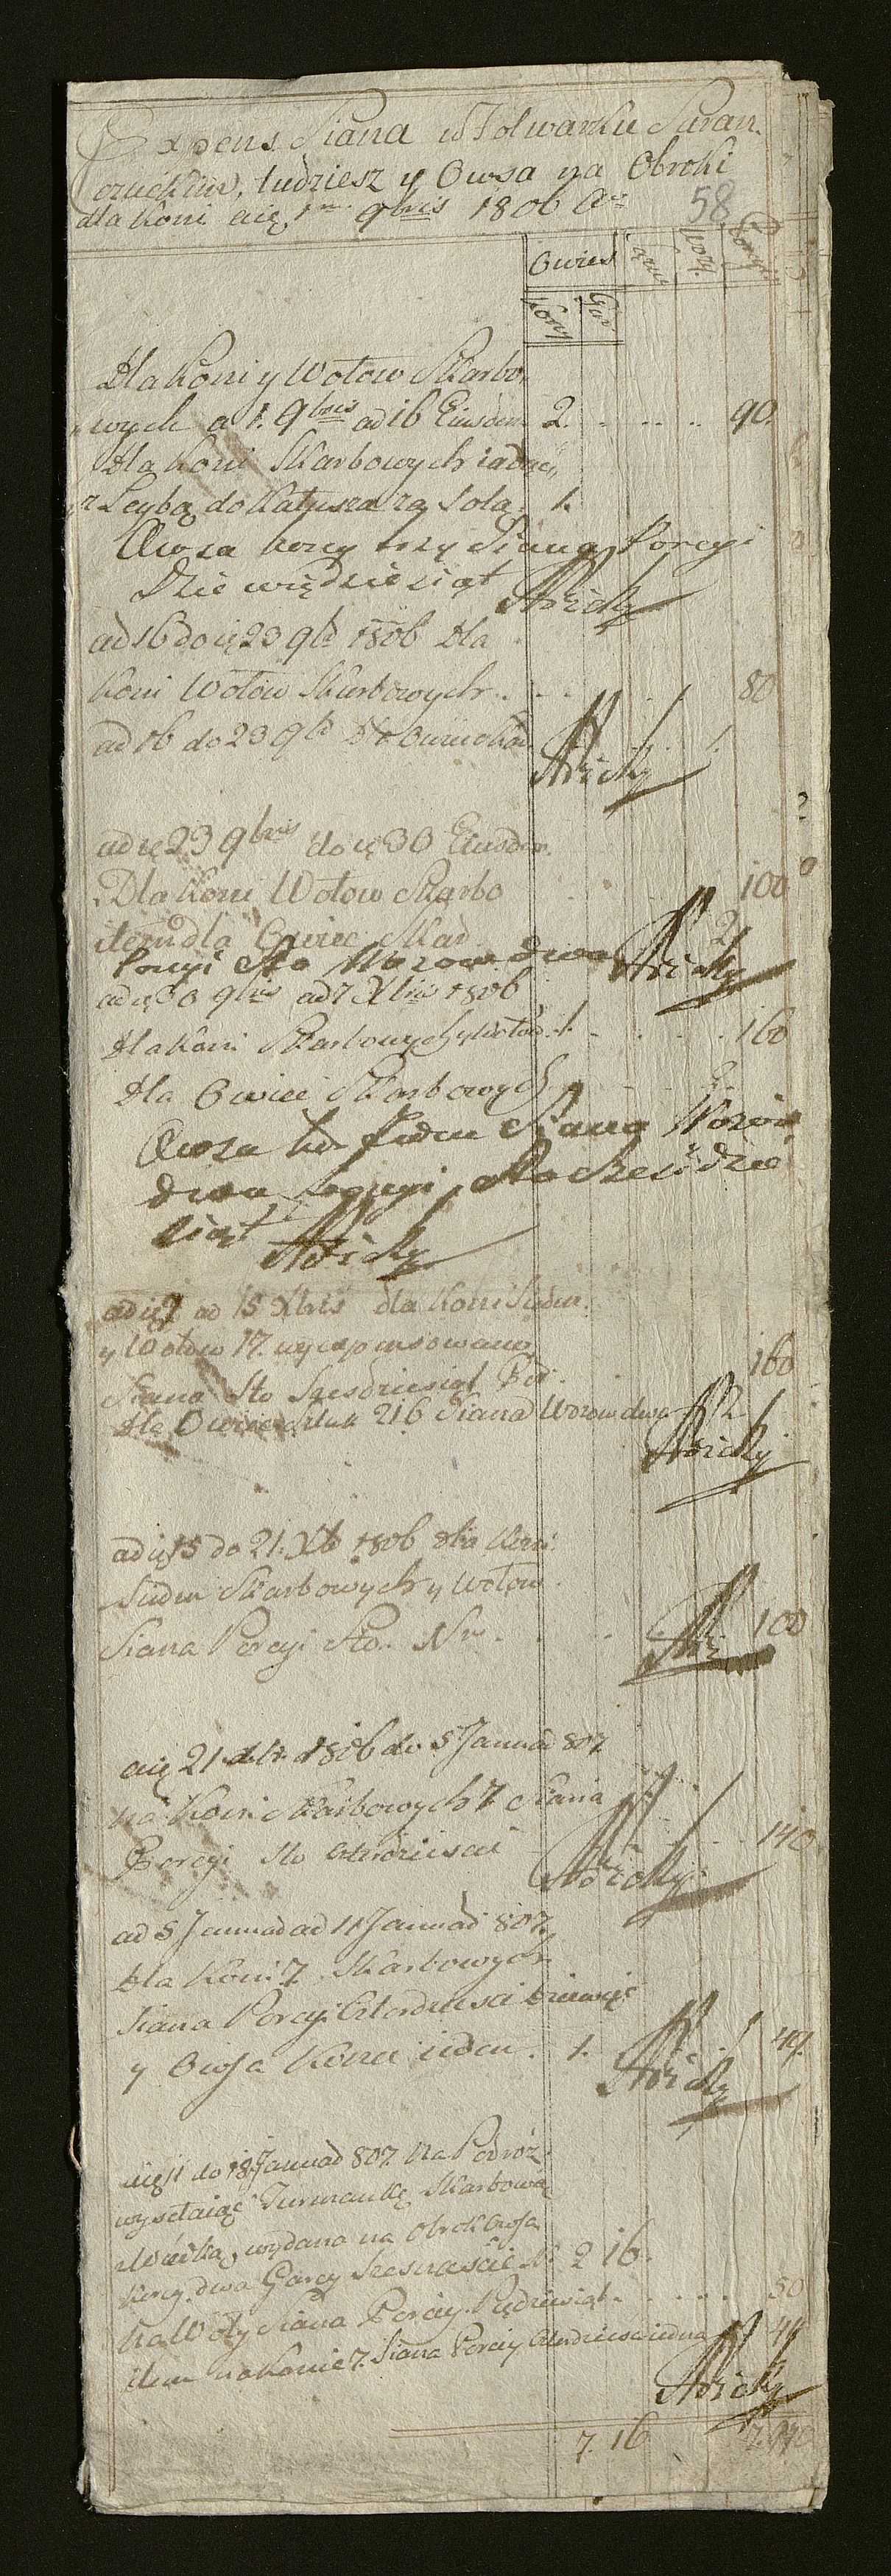 Expens Siana w Folwarku Saran.
czuckim, tudziesz y Owsa na Obroki
dla Koni
9bris 1806 Ao
58
Owies
Wozy
Porcyi
Korcy
Gar
Dla Koni y Wołow Skarbo,
wych a 1. 9bris ad 16 Eiusdem 2. . . . . . 90.
Dla Koni Skarbowych
z Leybą do Kałusza za Solą. 1.
Owsa korcy trzy Siana Porcyi
Dziewiędziesiąt
ad 16 do 23 9b 1806 Dla
Koni Wołow Skarbowych . . . . . 80
ad 16 do 23 9b 1.
23 9bris do 30 Eiusdem.
Dla Koni Wołow Skarbo 100
item dla Owiec Skar. 2
Porcyi Sto Wozow dwa
30 9bris ad 7 Xbris 1806
Dla Koni Skarbowych y Wołow. 1. . . . . 160
Dla Owiec Skarbowych . . . 2.
Owsa kor Jeden Siana Wozów
dwa Porcyi Sto Sześćdzie
siąt
ad 15 Xbris dla Koni Siedm.
y Wołow 17. wyexpensowano
Siana Sto Szesdziesiąt Por. 160
Dla Owiec Sztuk 216 Siana Wozow dwa 2
15 do 21. Xb 1806 dla Koni
Siedm Skarbowych y Wołow
Siana Porcyi Sto. Nr. . . . 100
21 1806 do 5 Januar 807
na Koni Skarbowych 7. Siana
Porcyi Sto Czterdziesci 140
ad 5 Januar ad 11 Januar 807.
Dla Koni 7. Skarbowych
Siana Porcyi Czterdziesci Dziewięć
y Owsa Korzec ieden. 1. 49.
11 do 18 Januar 807. Na Podróż
wysełaiąc Furmankę Skarbową
wydano na Obrok Owsa
Korcy dwa Garcy Szesnascie No 2 16.
Na Woły Siana Porcyi Pędziesiąt. . . . . 50
Item na Konie 7. Siana Porcyi Czterdziesci iedna 41
7. 16